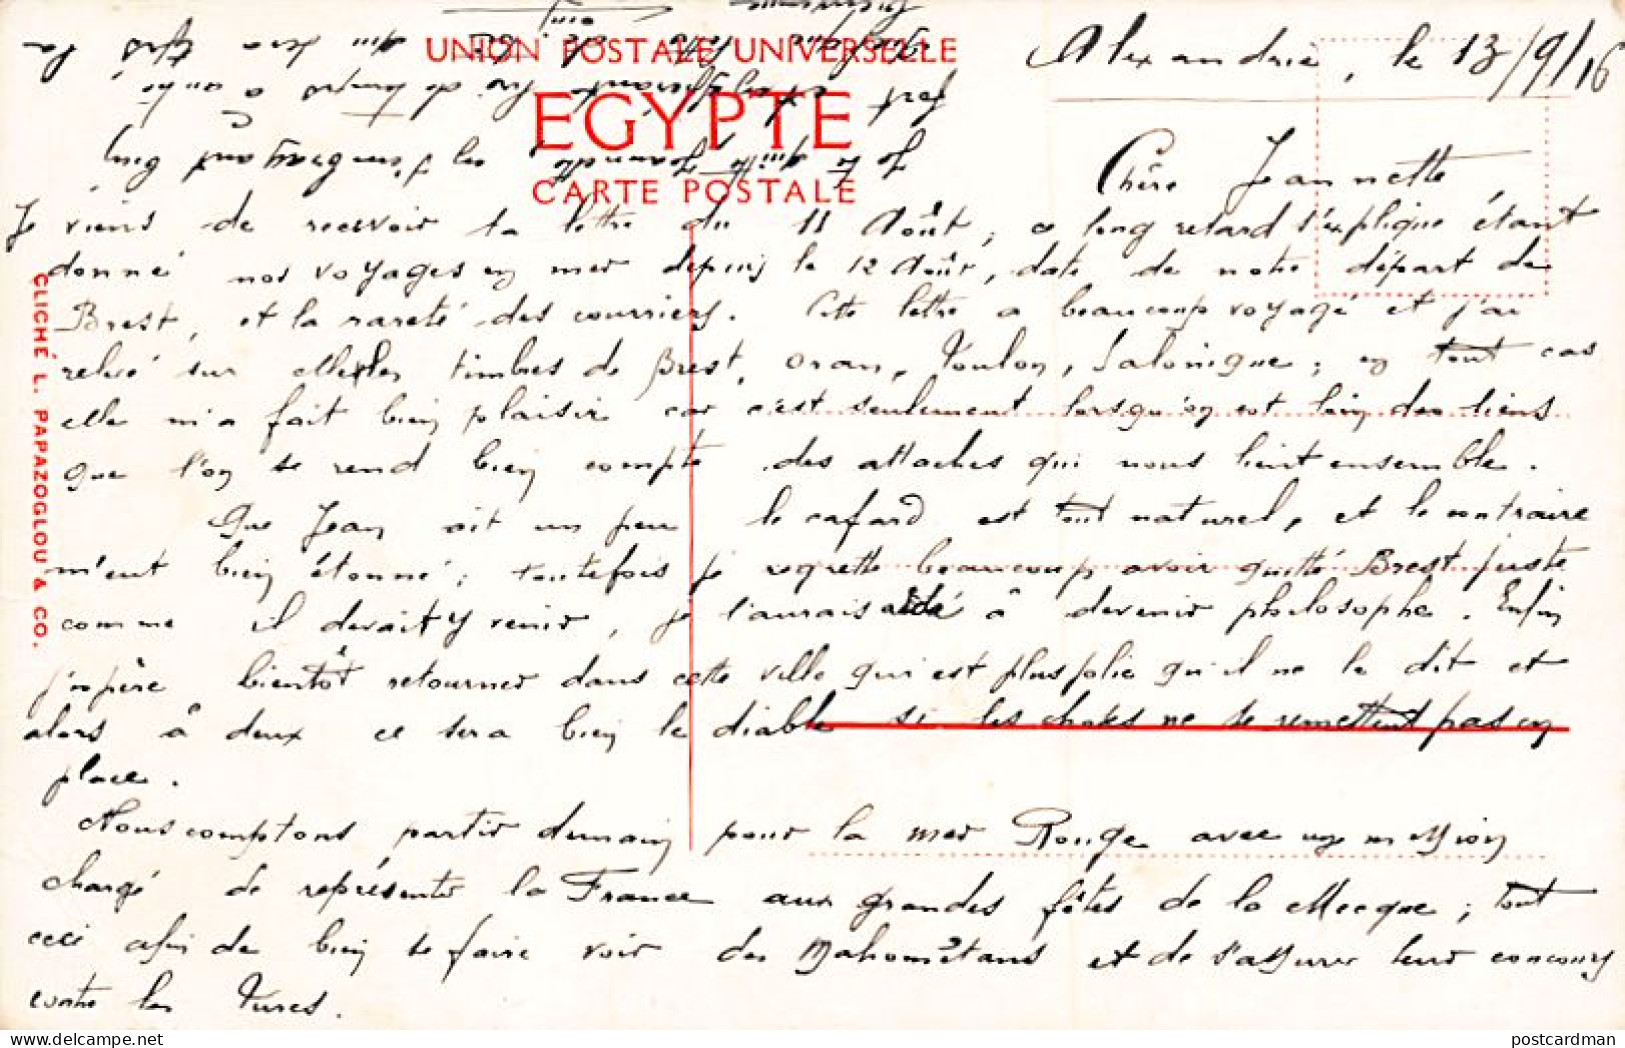 UNION POSTALE UNIVERSELLE
EGYPTE
CARTE POSTALE
CLICHÉ L. PAPAZOGLOU & CO.
Alexandrie, le 13/9/16
Chère Jeannette
Je viens de recevoir ta lettre du 11 Août, ce long retard s'explique étant
donné nos voyages en mer depuis le 12 Août, date de notre départ de
Brest, et la rareté des courriers. Cette lettre a beaucoup voyagé et j'ai
relevé sur elle les timbres de Brest, Oran, Toulon, Salonique; en tout cas
elle m'a fait bien plaisir car c'est seulement lorsqu'on est loin des siens
que l'on se rend bien compte des attaches qui nous lient ensemble.
Que Jean ait un peu le cafard est tout naturel, et le contraire
m'eut bien étonné; toutefois je regrette beaucoup avoir quitté Brest juste
comme il devait y venir, je l'aurais aidé à devenir philosophe. Enfin
j'espère bientôt retourner dans cette ville qui est plus jolie qu'il ne le dit et
alors à deux ce sera bien le diable si les choses ne se remettent pas en
place.
Nous comptons partir demain pour la mer Rouge avec une mission
chargé de représenter la France aux grandes fêtes de la Mecque; tout
ceci afin de bien se faire voir des Mahométans et de s'assurer leur concours
contre les Turcs.
Je te quitte Jeannette, en t'embrassant bien
fort et en espérant lire de temps à autre